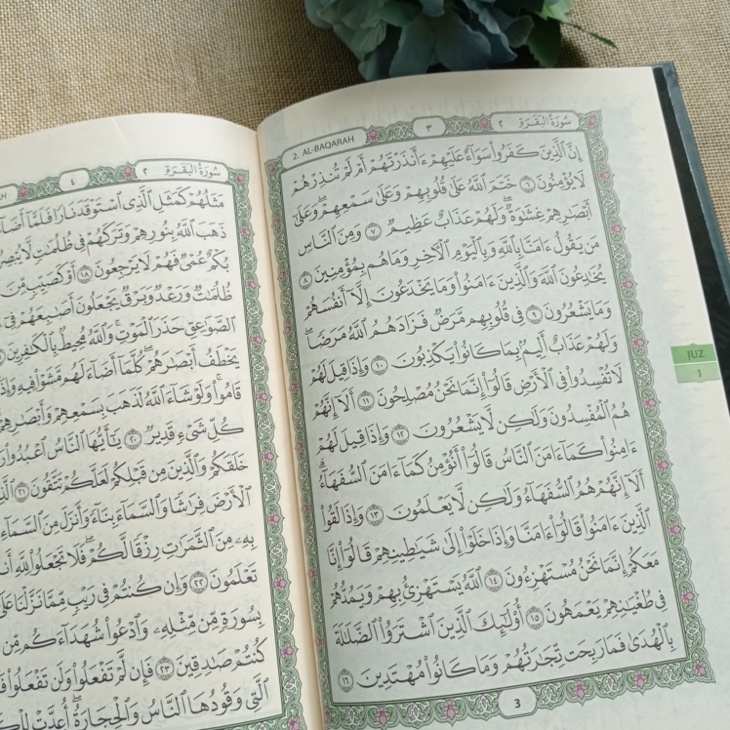 2. AL-BAQARAH ٣ سُورَةُ الْبَقَرَةِ ٢
إِنَّ ٱلَّذِينَ كَفَرُوا۟ سَوَآءٌ عَلَيْهِمْ ءَأَنذَرْتَهُمْ أَمْ لَمْ تُنذِرْهُمْ
لَا يُؤْمِنُونَ ٦ خَتَمَ ٱللَّهُ عَلَىٰ قُلُوبِهِمْ وَعَلَىٰ سَمْعِهِمْ ۖ وَعَلَىٰٓ
أَبْصَٰرِهِمْ غِشَٰوَةٌ ۖ وَلَهُمْ عَذَابٌ عَظِيمٌ ٧ وَمِنَ ٱلنَّاسِ
مَن يَقُولُ ءَامَنَّا بِٱللَّهِ وَبِٱلْيَوْمِ ٱلْءَاخِرِ وَمَا هُم بِمُؤْمِنِينَ ٨
يُخَٰدِعُونَ ٱللَّهَ وَٱلَّذِينَ ءَامَنُوا۟ وَمَا يَخْدَعُونَ إِلَّآ أَنفُسَهُمْ
وَمَا يَشْعُرُونَ ٩ فِى قُلُوبِهِم مَّرَضٌ فَزَادَهُمُ ٱللَّهُ مَرَضًا ۖ
وَلَهُمْ عَذَابٌ أَلِيمٌۢ بِمَا كَانُوا۟ يَكْذِبُونَ ١٠ وَإِذَا قِيلَ لَهُمْ
لَا تُفْسِدُوا۟ فِى ٱلْأَرْضِ قَالُوٓا۟ إِنَّمَا نَحْنُ مُصْلِحُونَ ١١ أَلَآ إِنَّهُمْ
هُمُ ٱلْمُفْسِدُونَ وَلَٰكِن لَّا يَشْعُرُونَ ١٢ وَإِذَا قِيلَ لَهُمْ
ءَامِنُوا۟ كَمَآ ءَامَنَ ٱلنَّاسُ قَالُوٓا۟ أَنُؤْمِنُ كَمَآ ءَامَنَ ٱلسُّفَهَآءُ ۗ
أَلَآ إِنَّهُمْ هُمُ ٱلسُّفَهَآءُ وَلَٰكِن لَّا يَعْلَمُونَ ١٣ وَإِذَا لَقُوا۟
ٱلَّذِينَ ءَامَنُوا۟ قَالُوٓا۟ ءَامَنَّا وَإِذَا خَلَوْا۟ إِلَىٰ شَيَٰطِينِهِمْ قَالُوٓا۟ إِنَّا
مَعَكُمْ إِنَّمَا نَحْنُ مُسْتَهْزِءُونَ ١٤ ٱللَّهُ يَسْتَهْزِئُ بِهِمْ وَيَمُدُّهُمْ
فِى طُغْيَٰنِهِمْ يَعْمَهُونَ ١٥ أُو۟لَٰٓئِكَ ٱلَّذِينَ ٱشْتَرَوُا۟ ٱلضَّلَٰلَةَ
بِٱلْهُدَىٰ فَمَا رَبِحَت تِّجَٰرَتُهُمْ وَمَا كَانُوا۟ مُهْتَدِينَ ١٦
3
JUZ
1
٤ سُورَةُ الْبَقَرَةِ ٢
مَثَلُهُمْ كَمَثَلِ ٱلَّذِى ٱسْتَوْقَدَ نَارًا فَلَمَّآ
ذَهَبَ ٱللَّهُ بِنُورِهِمْ وَتَرَكَهُمْ فِى ظُلُمَٰتٍ لَّا
بُكْمٌ عُمْىٌ فَهُمْ لَا يَرْجِعُونَ ١٨ أَوْ كَصَيِّبٍ مِّنَ
ظُلُمَٰتٌ وَرَعْدٌ وَبَرْقٌ يَجْعَلُونَ أَصَٰبِعَهُمْ فِىٓ
ٱلصَّوَٰعِقِ حَذَرَ ٱلْمَوْتِ ۚ وَٱللَّهُ مُحِيطٌۢ بِٱلْكَٰفِرِينَ
يَخْطَفُ أَبْصَٰرَهُمْ ۖ كُلَّمَآ أَضَآءَ لَهُم مَّشَوْا۟ فِيهِ
قَامُوا۟ ۚ وَلَوْ شَآءَ ٱللَّهُ لَذَهَبَ بِسَمْعِهِمْ
كُلِّ شَىْءٍ قَدِيرٌ ٢٠ يَٰٓأَيُّهَا ٱلنَّاسُ ٱعْبُدُوا۟
خَلَقَكُمْ وَٱلَّذِينَ مِن قَبْلِكُمْ لَعَلَّكُمْ تَتَّقُونَ ٢١
ٱلْأَرْضَ فِرَٰشًا وَٱلسَّمَآءَ بِنَآءً وَأَنزَلَ مِنَ ٱلسَّمَآءِ
بِهِۦ مِنَ ٱلثَّمَرَٰتِ رِزْقًا لَّكُمْ ۖ فَلَا تَجْعَلُوا۟ لِلَّهِ
تَعْلَمُونَ ٢٢ وَإِن كُنتُمْ فِى رَيْبٍ مِّمَّا نَزَّلْنَا
بِسُورَةٍ مِّن مِّثْلِهِۦ وَٱدْعُوا۟ شُهَدَآءَكُم مِّن
كُنتُمْ صَٰدِقِينَ ٢٣ فَإِن لَّمْ تَفْعَلُوا۟ وَلَن تَفْعَلُوا۟
ٱلَّتِى وَقُودُهَا ٱلنَّاسُ وَٱلْحِجَارَةُ ۖ أُعِدَّتْ